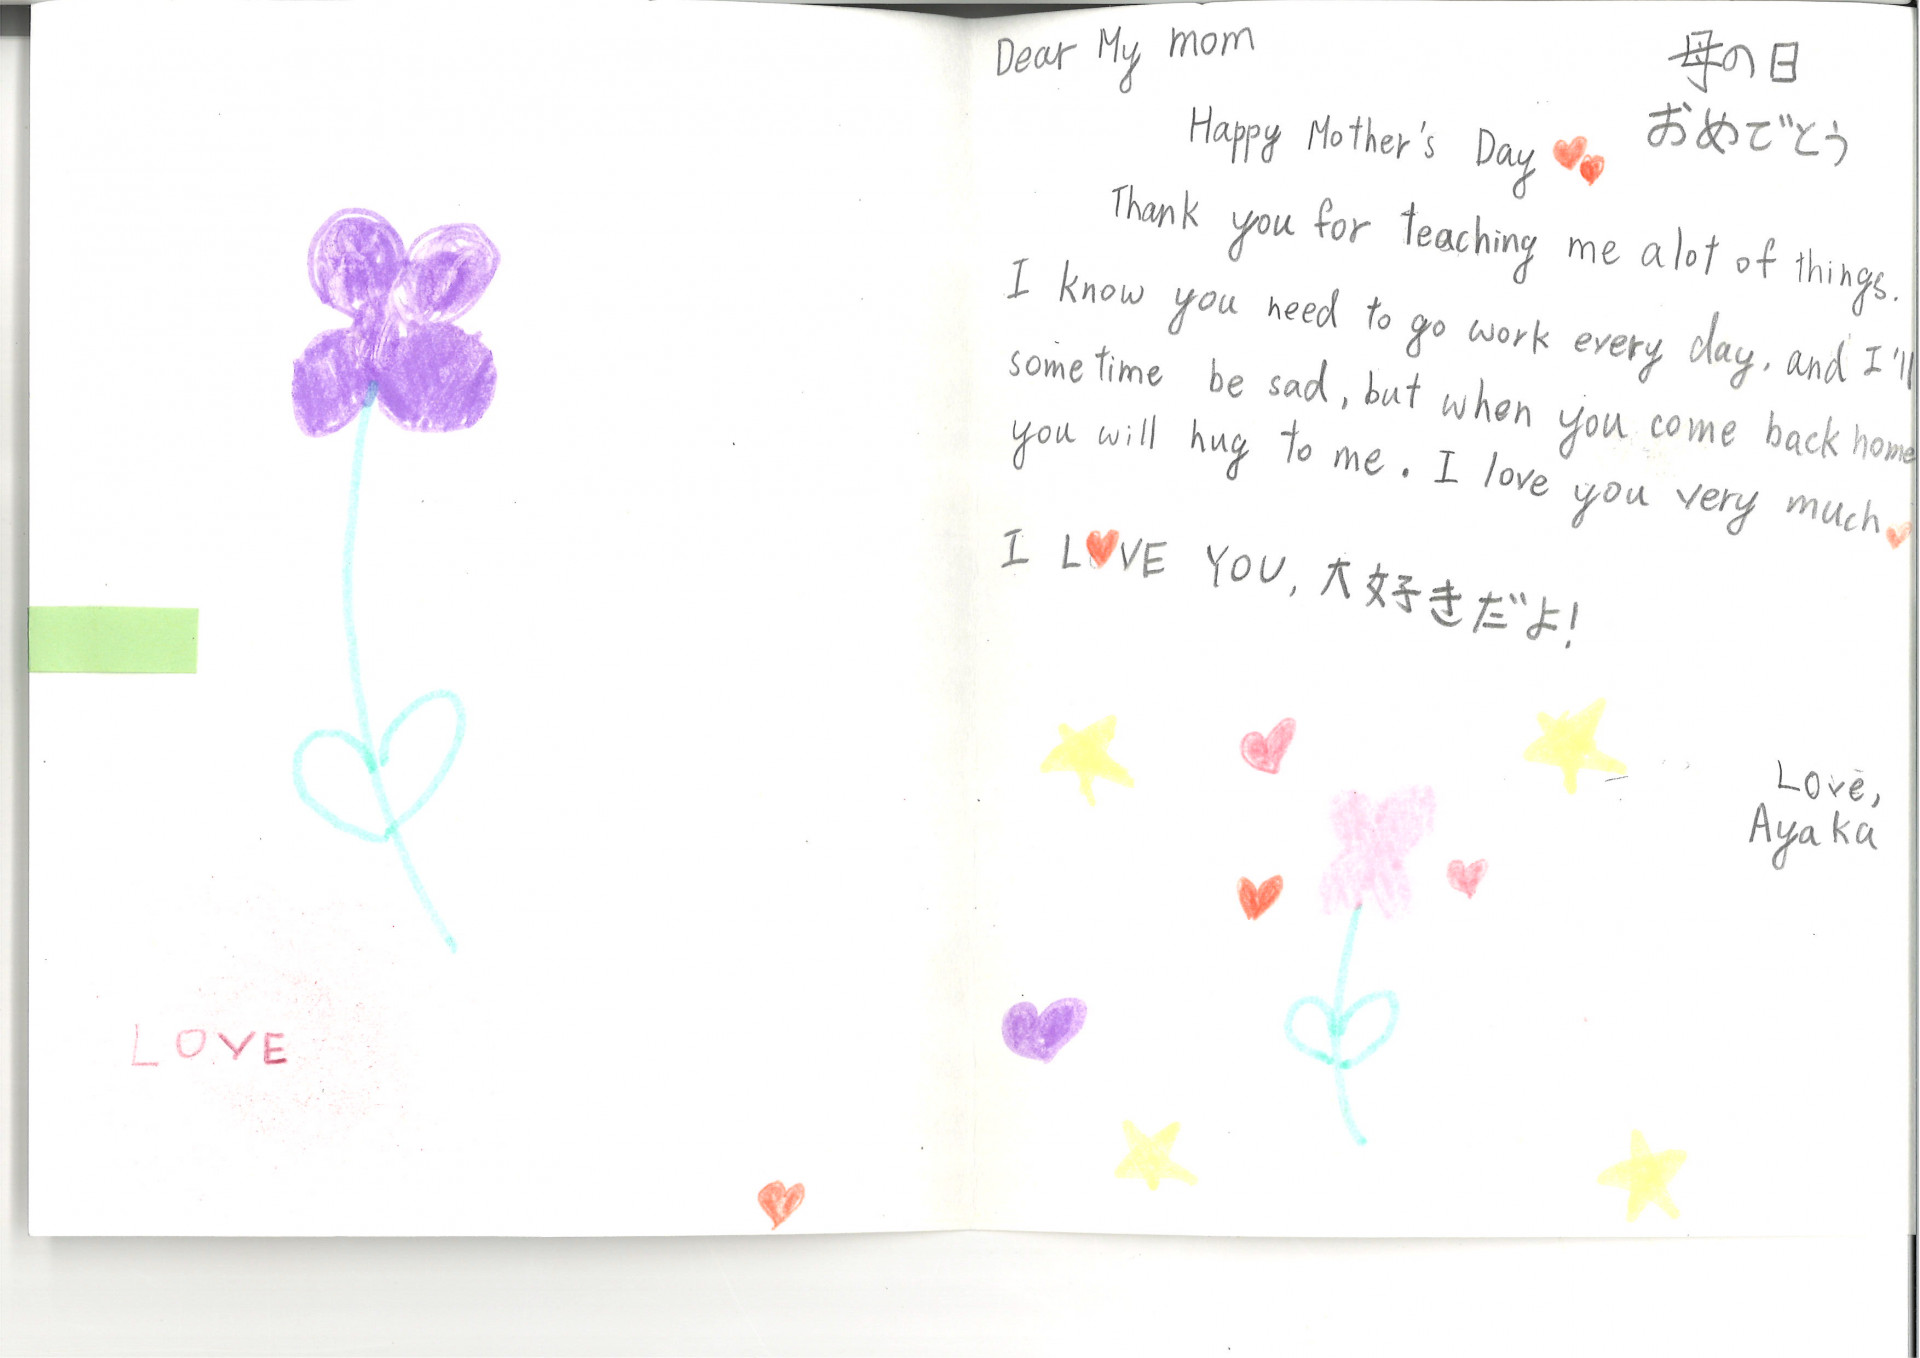 LOVE
Dear My mom
母の日
おめでとう
Happy Mother's Day
Thank you for teaching me alot of things.
I know you need to go work every day, and I'll
sometime be sad, but when you come back home
you will hug to me. I love you very much
I LOVE YOU, 大好きだよ!
Love,
Ayaka